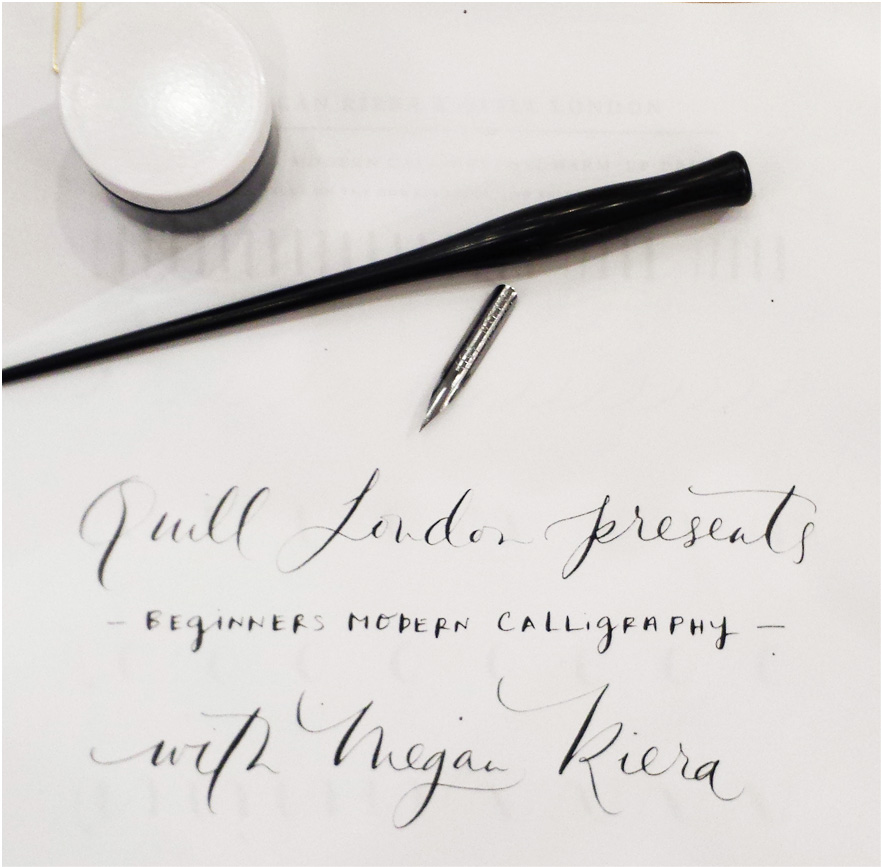 Quill London presents
- BEGINNERS MODERN CALLIGRAPHY -
with Megan Riera